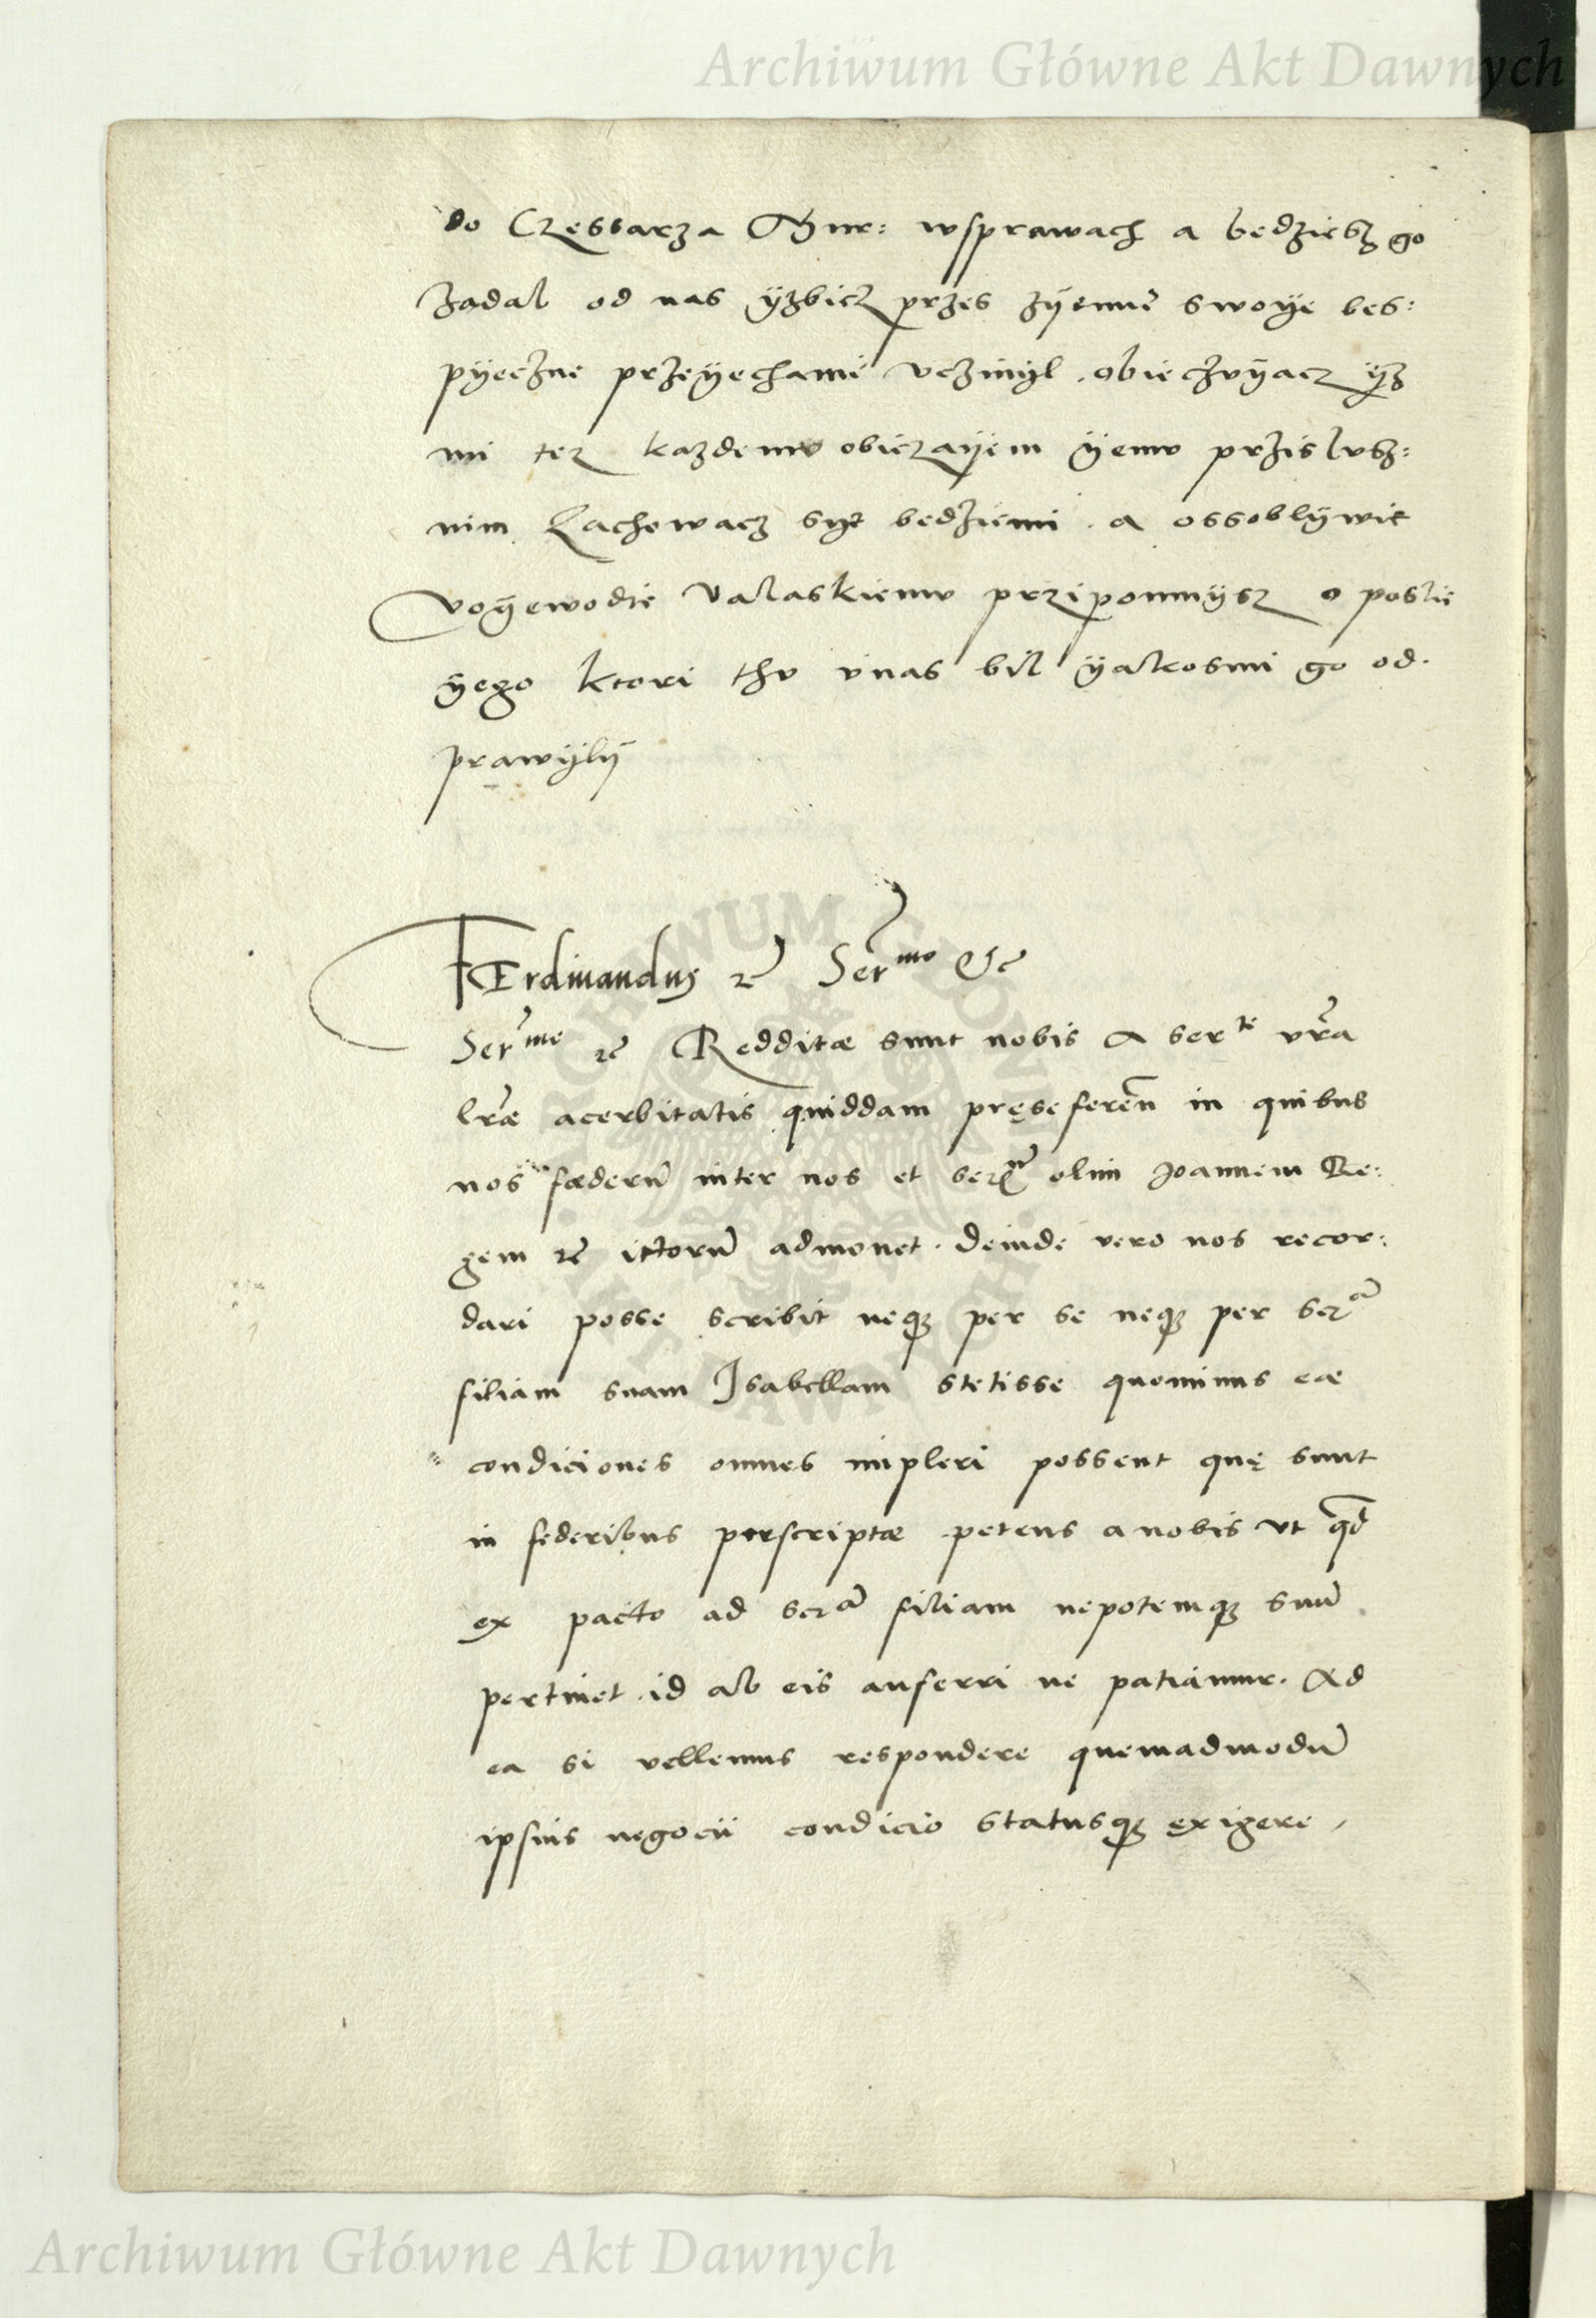 Archiwum Główne Akt Dawnych
do Częssarza Thur: wsprawach a bedziesz go
żadal od nas ÿżbicz przes żÿemie swoÿe bes:
pÿeczne przeÿechanie vczinÿl . obieczuÿacz ÿż
mi tez kazdemu obiczaÿem ÿemu przisluſz:
nim Zachowacz sÿe bedziemi . a ossoblÿwie
voÿewodzie valaskiemu przipomnÿsz o poslie
ÿego ktori thu vnas bil ÿakosmi go od.
prawÿlÿ
FErdinandus &c̃ Ser^mo &c̃
Ser^me &c̃ Redditæ sunt nobis a ser^te vr̃a
lr̃æ acerbitatis quiddam pręseferen̄ in quibus
nos fœderũ inter nos et ser^m olim Joannem Re:
gem &c̃ ictorũ admonet . deinde vero nos recor:
dari posse scribit neq̃ per se neq̃ per ser^a
filiam suam Isabellam stetisse quominus eæ
condiciones omnes impleri possent quę sunt
in federibus perscriptæ petens a nobis vt qd̃
ex pacto ad ser^a filiam nepotemq̃ suũ
pertinet . id ab eis auferri ne patiamur . Ad
ea si vellemus respondere quemadmodũ
ipsius negocii condicio statusq̃ exigere,
Archiwum Główne Akt Dawnych